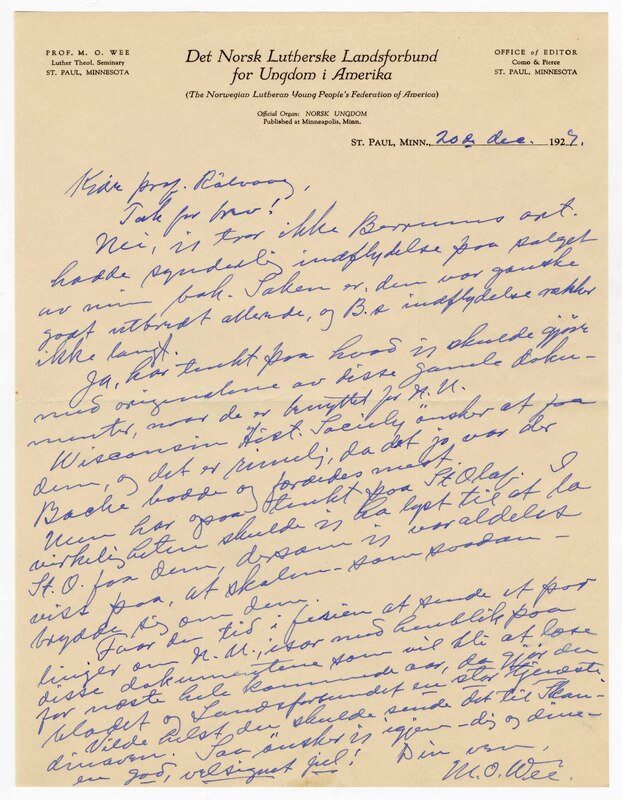 PROF. M. O. WEE
Luther Theol. Seminary
ST. PAUL, MINNESOTA
Det Norsk Lutherske Landsforbund
for Ungdom i Amerika
(The Norwegian Lutheran Young People's Federation of America)
Official Organ: NORSK UNGDOM
Published at Minneapolis, Minn.
OFFICE of EDITOR
Como & Pierce
ST. PAUL, MINNESOTA
ST. PAUL, MINN., 20de dec. 1927.
Kjære prof. Rölvaag,
Tak for brev!
Nei, jeg tror ikke Berrums art.
hadde synderlig indflydelse paa salget
av min bok. Saken er, den var ganske
godt utbredt allerede, og B.s indflydelse rækker
ikke langt.
Ja, har tenkt paa hvad jeg skulde gjöre
med originalene av disse gamle doku-
menter, naar de er benyttet for N. U.
Wisconsin Hist. Society önsker at faa
dem, og det er rimelig, da det jo var der
Backe bodde og færdedes mest.
Men har ogsaa tenkt paa St. Olaf. I
virkeligheten skulde jeg ha lyst til at la
St. O. faa dem, dersom jeg var aldeles
viss paa, at skolen - som saadan -
brydde sig om dem.
Faar du tid i ferien at sende et par
linjer om N. U., især med henblik paa
disse dokumentene som vil bli at læse
for næste hele kommende aar, da gjör du
bladet og Landsforbundet en stor tjeneste.
Vilde helst du skulde sende det til
Saa önsker jeg igjen - dig og dine -
en god, velsignet jul! Din ven,
M. O. Wee.